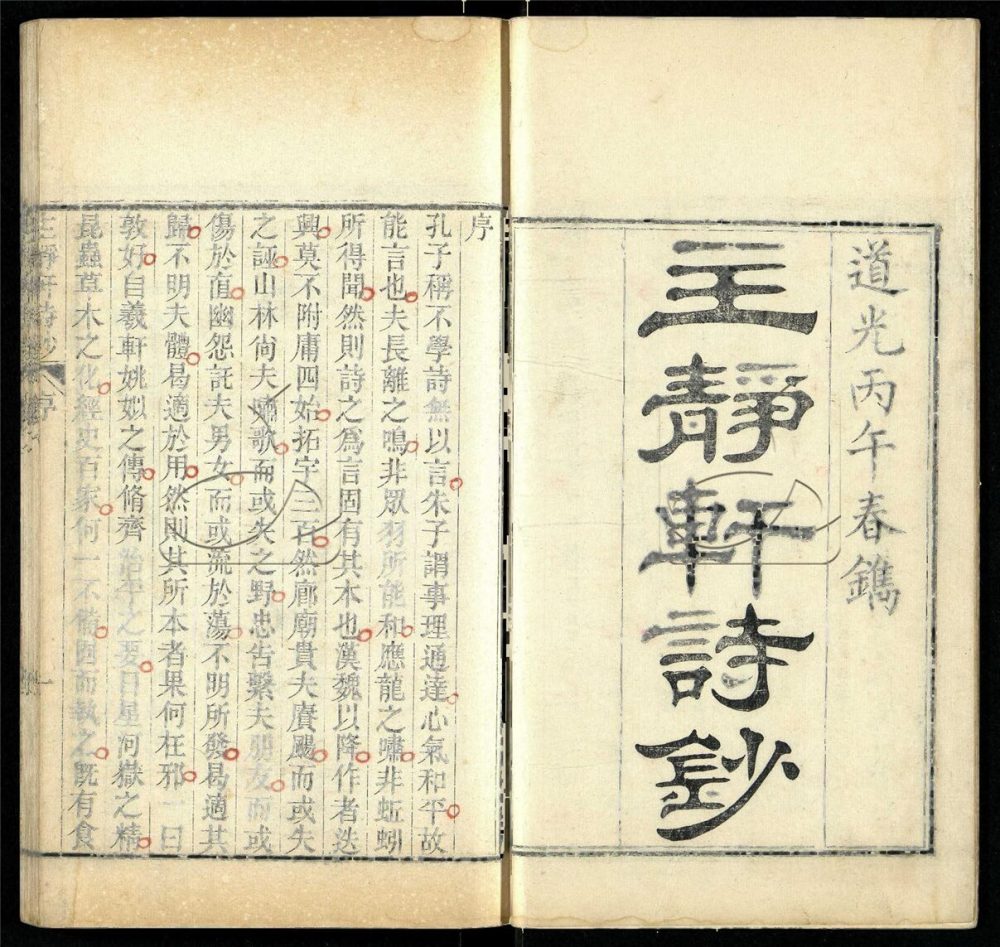 道光丙午春鐫
主靜軒詩鈔
序
孔子稱不學詩無以言朱子謂事理通達心氣和平故
能言也夫長離之鳴非眾羽所能和應龍之嘯非蚯蚓
所得聞然則詩之為言固有其本也漢魏以降作者迭
興莫不附庸四始拓宇三百然廊廟貴夫賡颺而或失
之誣山林尙夫嘯歌而或失之野忠告繫夫朋友而或
傷於直幽怨託夫男女而或流於蕩不明所發曷適其
歸不明夫體曷適於用然則其所本者果何在邪一曰
敦好自羲軒姚姒之傳脩齊治平之要日星河嶽之精
昆蟲草木之化經史百家何一不備因而執之旣有食
主靜軒詩鈔 序 一